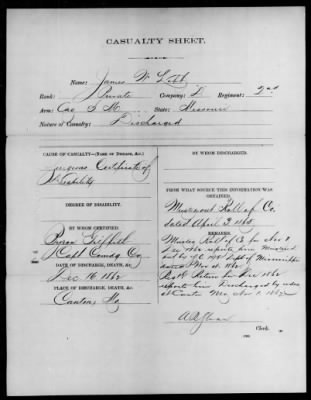 CASUALTY SHEET.
Name: James W
Rank: Private Company: D Regiment: 2nd
Arm: Cav S M State: Missouri
Nature of Casualty: Discharged
CAUSE OF CASUALTY—(NAME OF DISEASE, &c.)
Surgeons Certificate of
Disability
DEGREE OF DISABILITY.
BY WHOM CERTIFIED.
Capt Comdg Co
DATE OF DISCHARGE, DEATH, &c.
Dec 16 1862
PLACE OF DISCHARGE, DEATH, &c.
Canton, Mo
BY WHOM DISCHARGED.
FROM WHAT SOURCE THIS INFORMATION WAS OBTAINED.
Muster out Roll of Co.
dated April 2 1865
REMARKS.
Muster Roll of Co for Nov &
Dec 1862 reports him
out by
dated Nov 1862
Regt Return for Dec 1862
reports him Discharged by order
at Canton Mo,
Clerk.